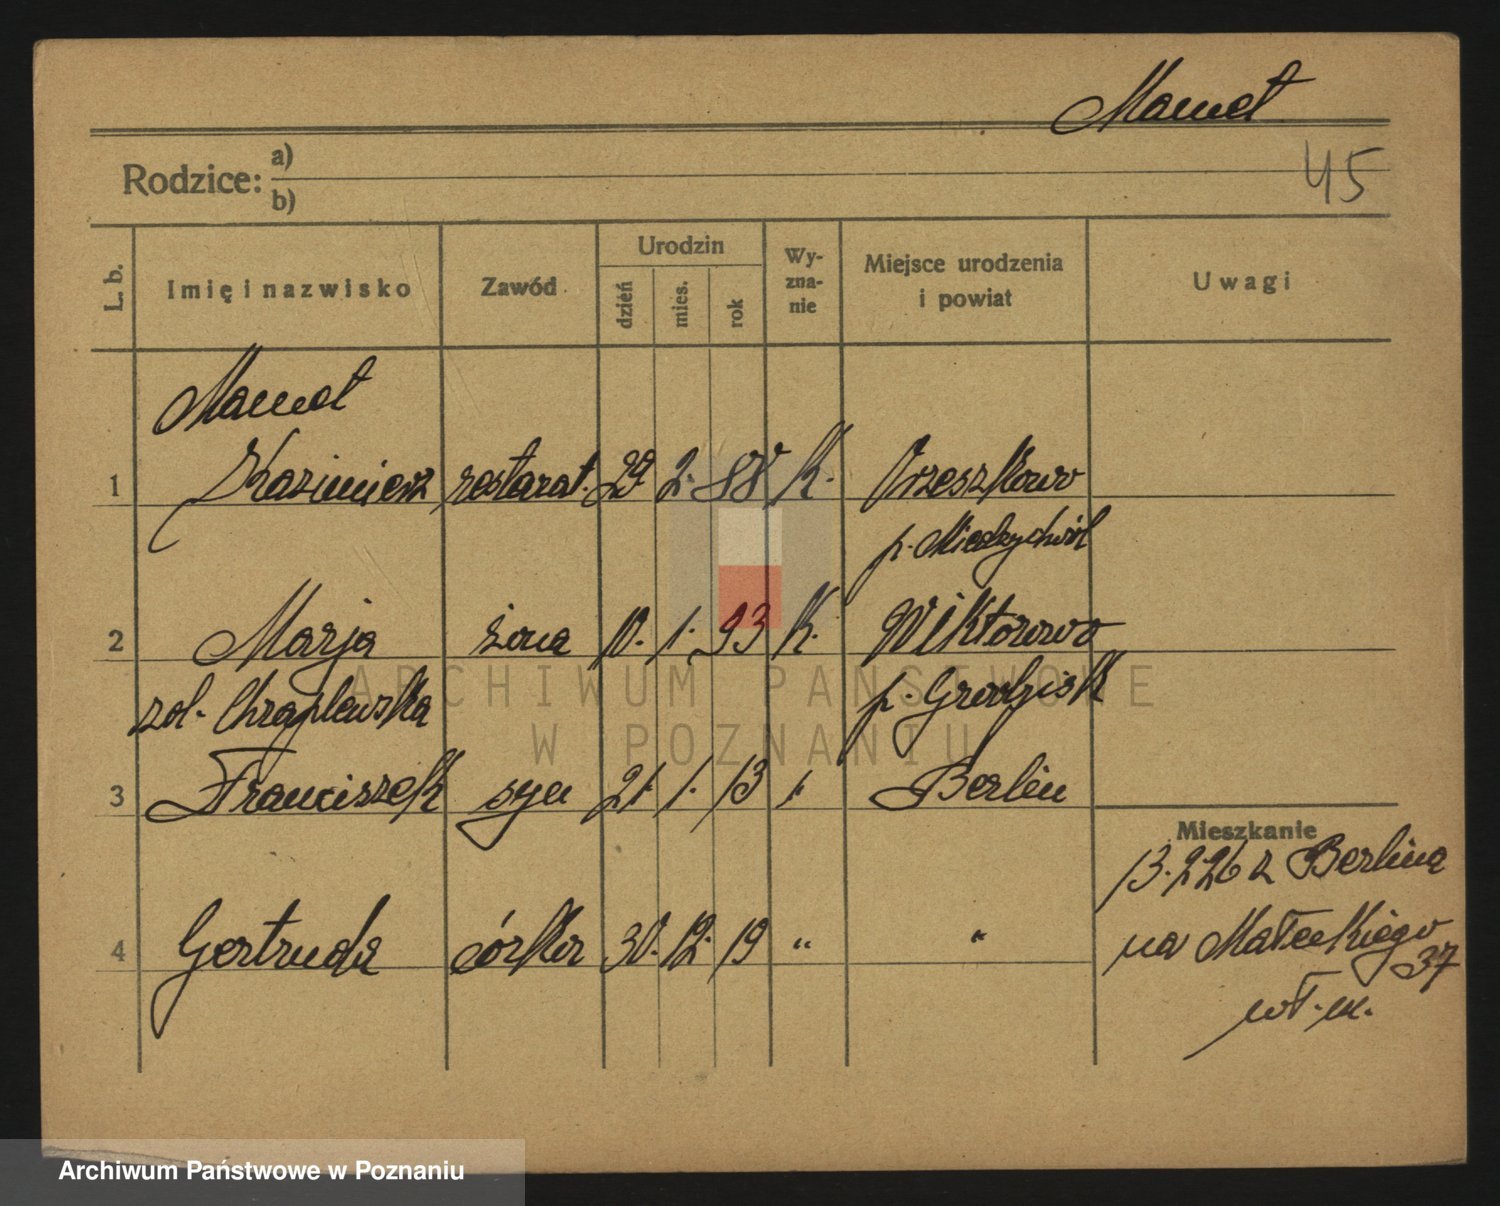 Mamet
Rodzice: a)
b)
45
L. b. Imię i nazwisko Zawód Urodzin dzień mies. rok Wyznanie Miejsce urodzenia i powiat Uwagi
Mamet
1 Kazimierz restarat. 29 2. 88 K. Orzeszkowo
p. Międzychód
2 Marja żona 10. 1. 93 K. Wiktorowo
zol. Chraplewska p. Grodzisk
3 Franciszek syn 21. 1. 13 Berlin
Mieszkanie
13.2.26 z Berlina
4 Gertruda córka 30. 12. 19 " "
na Małeckiego
37
wł. m.
ARCHIWUM PAŃSTWOWE
W POZNANIU
Archiwum Państwowe w Poznaniu